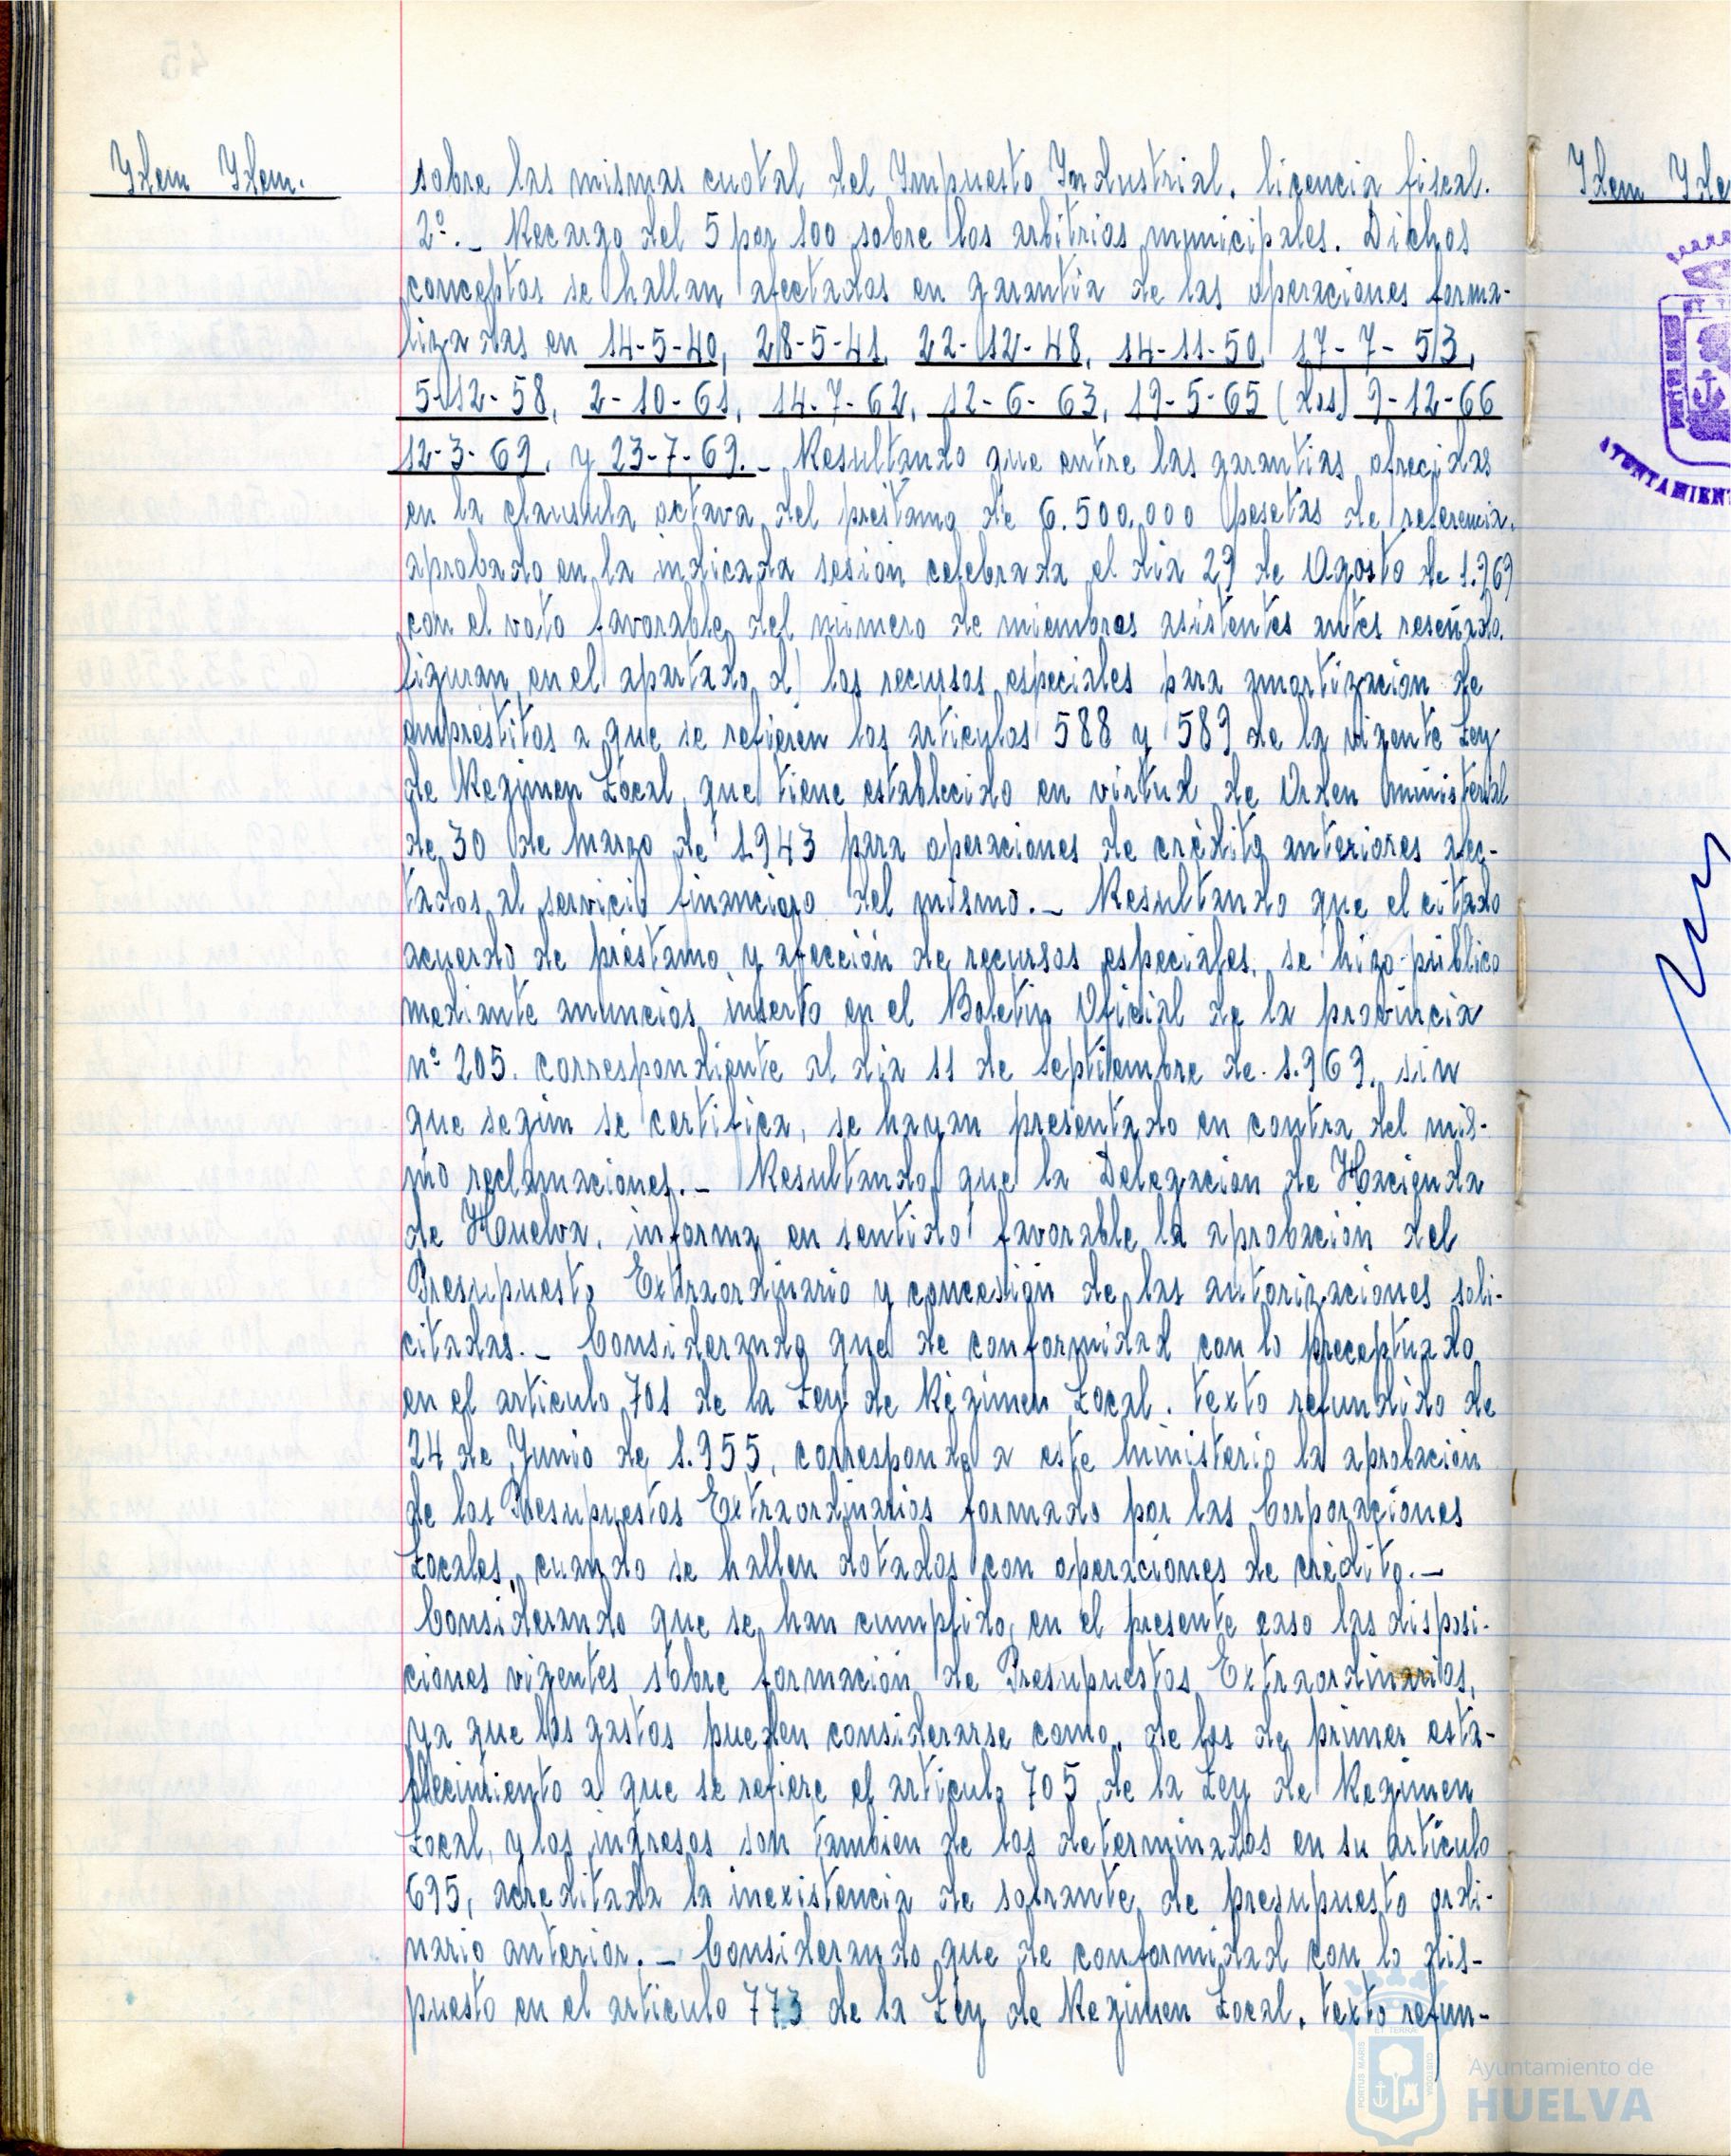 Idem Idem.
sobre las mismas cuotal del Impuesto Industrial. licencia fiscal.
2º._ Recargo del 5 por 100 sobre los arbitrios municipales. Dichos
conceptos se hallan afectados en garantía de las operaciones forma-
lizadas en 14-5-40, 28-5-41, 22-12-48, 14-11-50, 17-7-53,
5-12-58, 2-10-61, 14-7-62, 12-6-63, 19-5-65 (dos) 9-12-66
12-3-69, y 23-7-69._ Resultando que entre las garantias ofrecidas
en la clausula octava del préstamo de 6.500.000 pesetas de referencia,
aprobado en la indicada sesión celebrada el dia 29 de Agosto de 1.969
con el voto favorable del número de miembros asistentes antes reseñado,
figuran en el apartado d) los recursos especiales para amortizacion de
empréstitos a que se refieren los articulos 588 y 589 de la vigente Ley
de Regimen Local, que tiene establecido en virtud de Orden Ministerial
de 30 de Marzo de 1.943 para operaciones de crédito anteriores afec-
tados al servicio financiero del mismo._ Resultando que el citado
acuerdo de préstamo y afección de recursos especiales, se hizo público
mediante anuncios inserto en el Boletin Oficial de la provincia
nº 205. correspondiente al dia 11 de Septiembre de 1.969, sin
que según se certifica, se hayan presentado en contra del mis-
mo reclamaciones._ Resultando que la Delegacion de Hacienda
de Huelva, informa en sentido favorable la aprobación del
Presupuesto Extraordinario y concesión de las autorizaciones soli-
citadas._ Considerando que de conformidad con lo preceptuado
en el articulo 701 de la Ley de Régimen Local. texto refundido de
24 de Junio de 1.955, corresponde a este Ministerio la aprobación
de los Presupuestos Extraordinarios formado por las Corporaciones
Locales, cuando se hallen dotados con operaciones de crédito._
Considerando que se han cumplido, en el presente caso las disposi-
ciones vigentes sobre formación de Presupuestos Extraordinarios,
ya que los gastos pueden considerarse como, de los de primer esta-
blecimiento a que se refiere el articulo 705 de la Ley de Regimen
Local, y los ingresos son tambien de los determinados en su articulo
695, acreditada la inexistencia de sobrante de presupuesto ordi-
nario anterior._ Considerando que de conformidad con lo dis-
puesto en el articulo 773 de la Ley de Regimen Local, texto refun-
Idem Ide
AYUNTAMIEN
PORTUS MARIS
ET TERRÆ
CUSTODIA
Ayuntamiento de
HUELVA